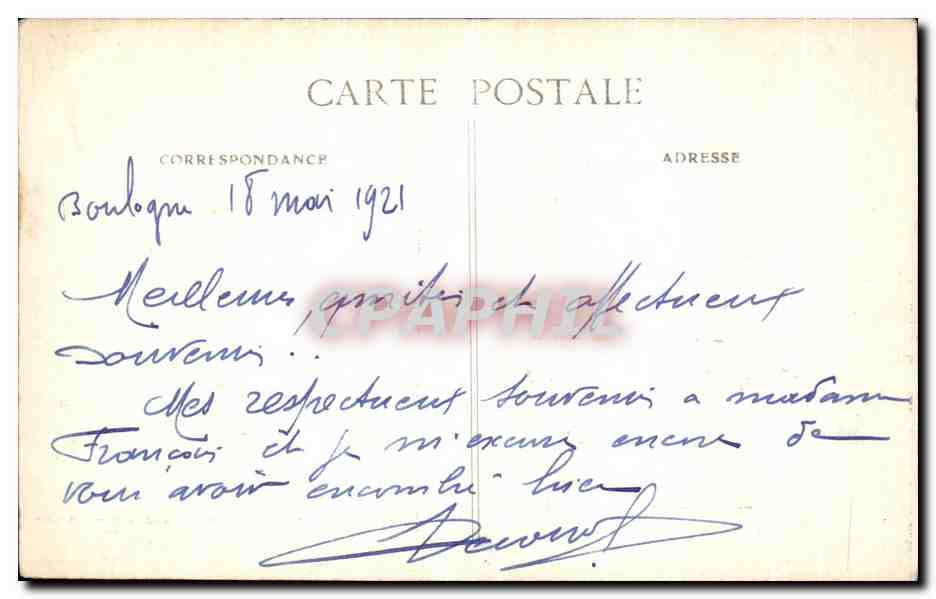 CARTE POSTALE
CORRESPONDANCE
ADRESSE
Boulogne 18 mai 1921
Meilleures amitiés et affectueux
CPAPHIL
souvenirs..
Mes respectueux souvenirs a madame
François et je m'excuse encore de
vous avoir encombré hier